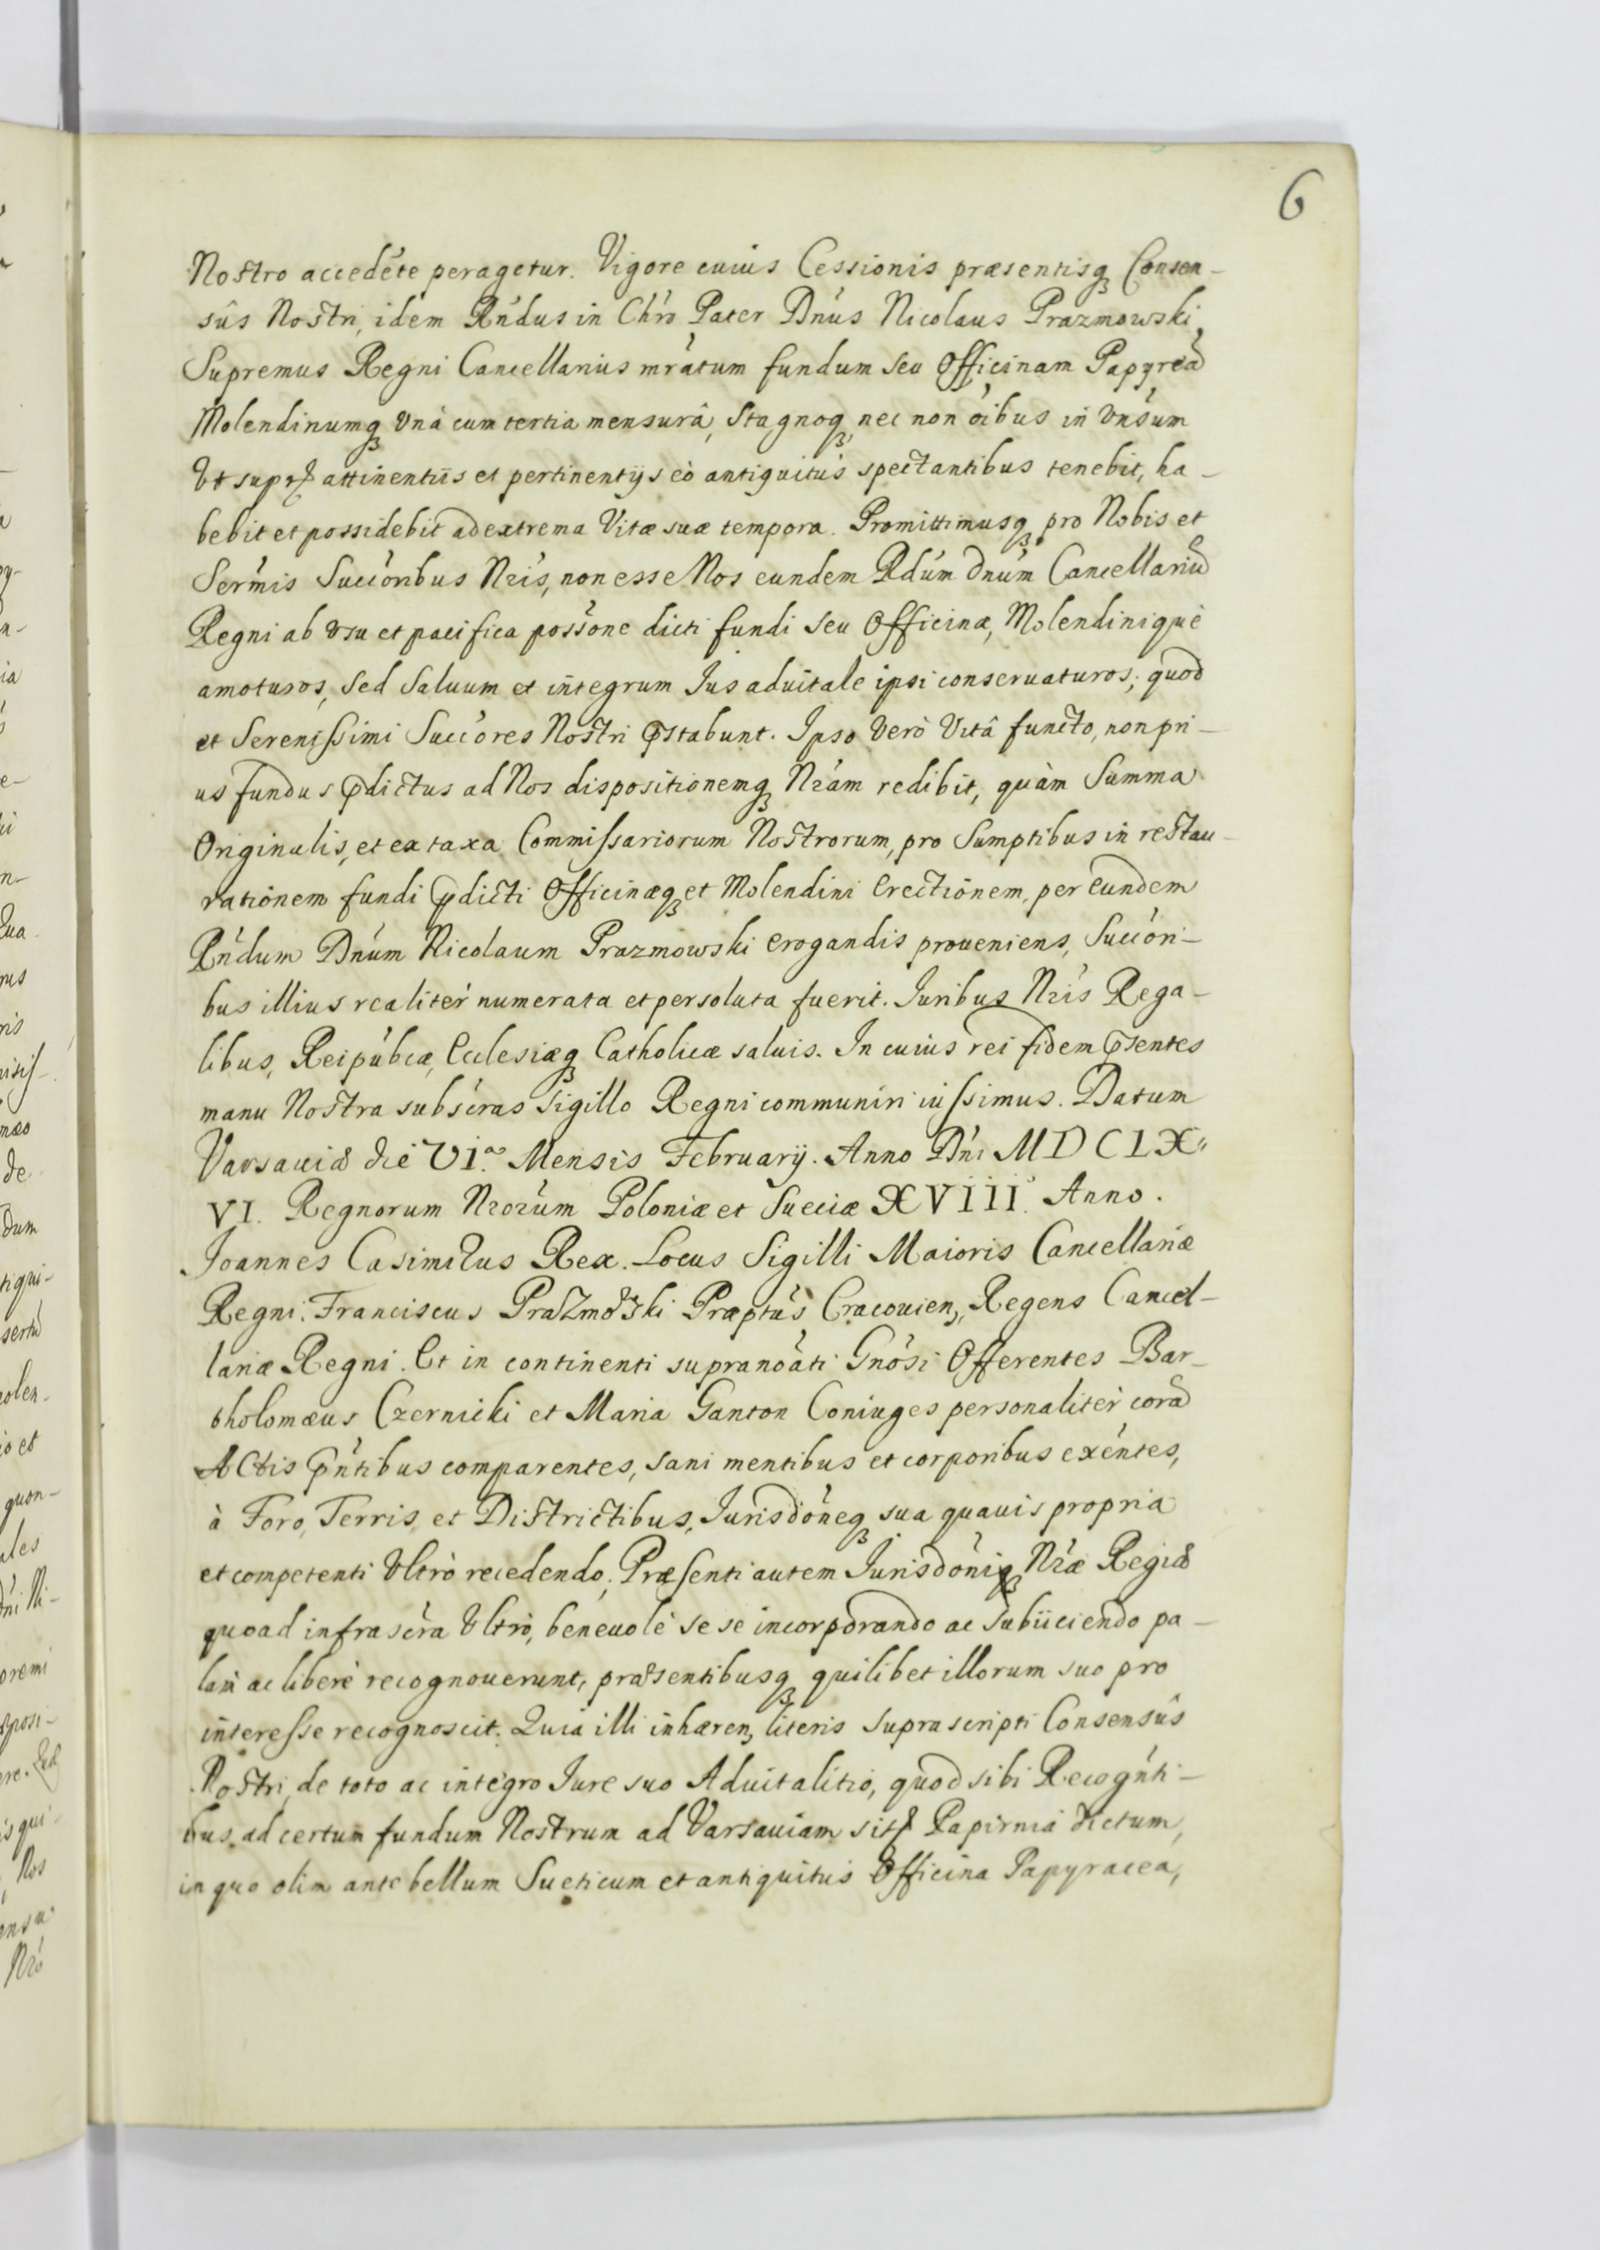 6
Nostro accedēte peragetur. Vigore cuius Cessionis præsentisq₃ Consen-
sûs Nostri, idem Rńdus in Chrō Pater Dńus Nicolaus Prazmowski
Supremus Regni Cancellarius mratum fundum seu Officinam Papyreā
Molendinumq₃ Vnà cum tertia mensurâ, Stagnoq₃ nec non oibus in Vnsum
Vt supr attinentiis et pertinentijs eò antiquitùs spectantibus tenebit, ha-
bebit et possidebit ad extrema Vitæ suæ tempora. Promittimusq₃ pro Nobis et
Sermis Succoribus Nris, non esse Nos eundem Rdum dnum Cancellariū
Regni ab vsu et pacifica possone dicti fundi seu Officinæ, Molendinique
amoturos, sed saluum et integrum Ius aduitale ipsi conseruaturos; quod
et Serenissimi Succores Nostri pstabunt. Ipso verò Vitâ functo, non pri-
us fundus pdictus ad Nos dispositionemq₃ Nram redibit, quàm Summa
Originalis, et ex taxa Commissariorum Nostrorum, pro Sumptibus in restau-
rationem fundi pdicti Officinæq₃ et Molendini Erectionem, per eundem
Rńdum Dńum Nicolaum Prazmowski erogandis proueniens, Succori-
bus illius realiter numerata et persoluta fuerit. Iuribus Nris Rega-
libus, Reipubcæ, Ecclesiæq₃ Catholicæ saluis. In cuius rei fidem psentes
manu Nostra subscras Sigillo Regni communiri iussimus. Datum
Varsauiæ die VI.ᵃ Mensis February. Anno Dńi MDCLX"
VI. Regnorum Nrorum Poloniæ et Sueciæ XVIII. Anno.
Joannes Casimirus Rex. Locus Sigilli Maioris Cancellariæ
Regni. Franciscus Prazmowski Præptus Cracouien₃, Regens Cancel-
lariæ Regni. Et in continenti supranoati Gnosi Offerentes Bar-
tholomæus Czernicki et Maria Ganton Coniuges personaliter corā
Actis pntibus comparentes, sani mentibus et corporibus exentes,
à Foro, Terris, et Districtibus, Iurisdoneq₃ sua quauis propria
et competenti Vltrò recedendo; Præsenti autem Iurisdoniq₃ Nræ Regiæ
quoad infrascra Vltrò, beneuolè se se incorporando ac subiiciendo pa-
lam ac liberè recognouerunt, præsentibusq₃ quilibet illorum suo pro
interesse recognoscit. Quia illi inhæren₃ literis suprascripti Consensûs
Nostri, de toto ac integro Iure suo Aduitalitio, quod sibi Recognti-
bus ad certum fundum Nostrum ad Varsauiam sit Papirnia dictum,
in quo olim ante bellum Sueticum et antiquitus Officina Papyracea,